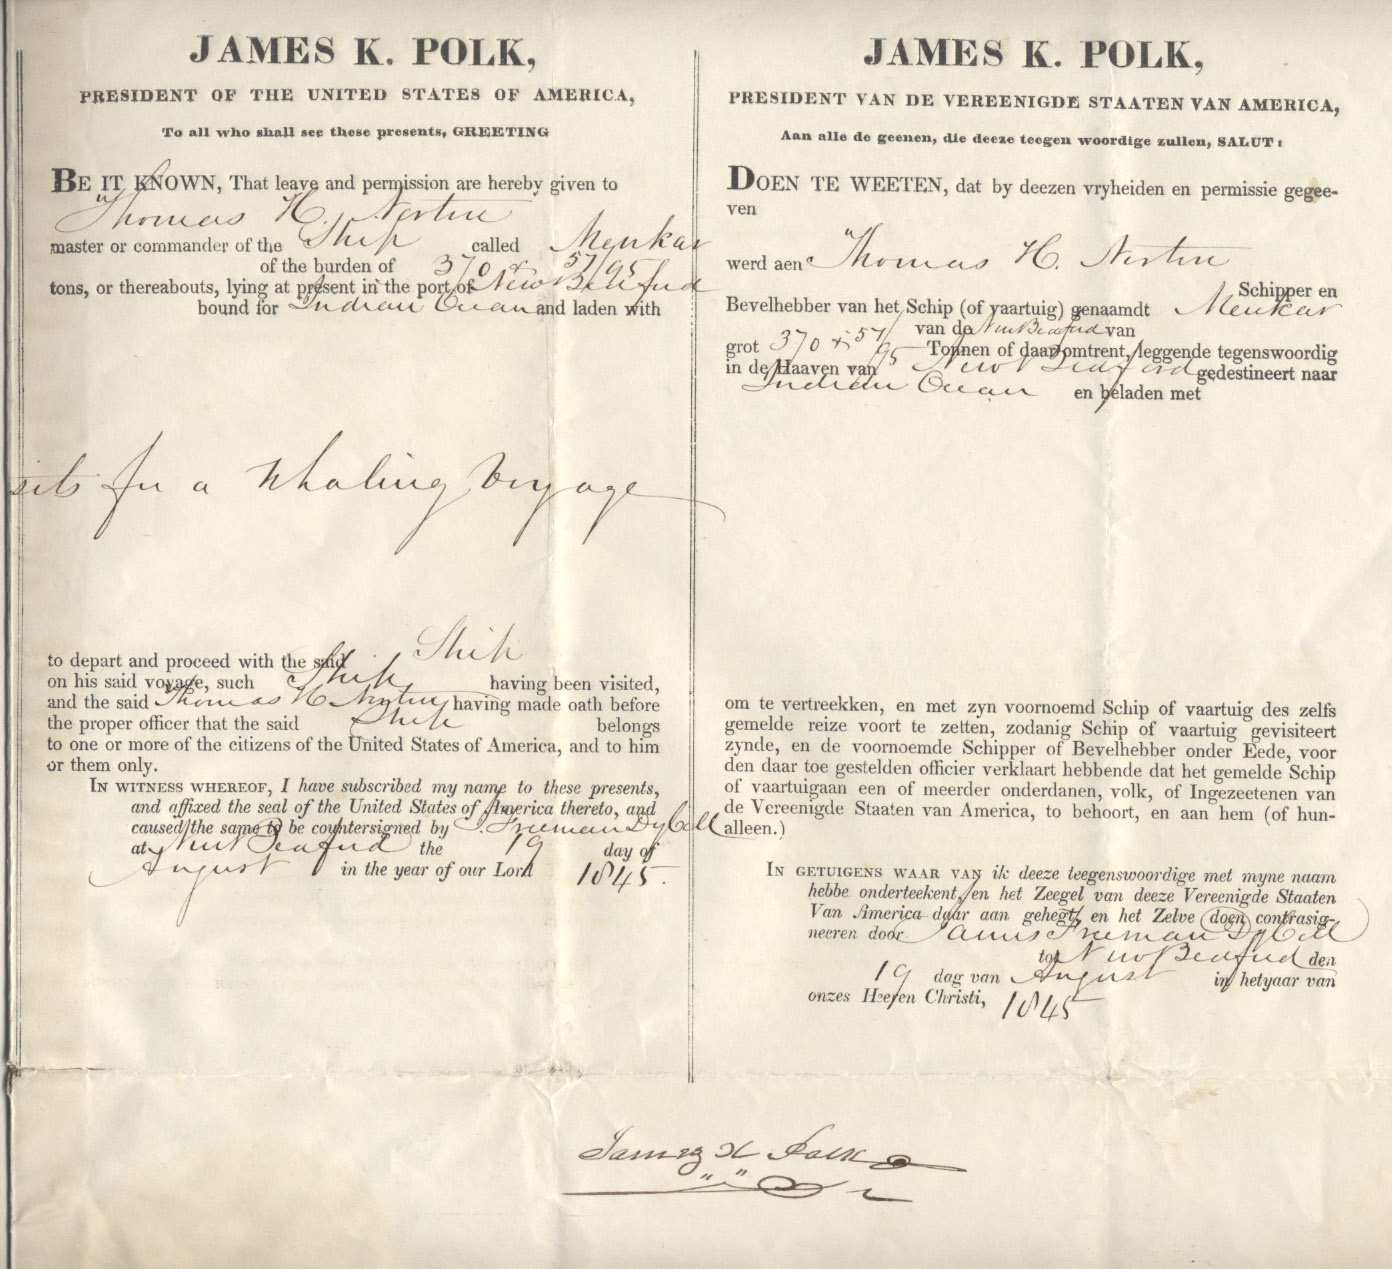 JAMES K. POLK,
PRESIDENT OF THE UNITED STATES OF AMERICA,
To all who shall see these presents, GREETING
BE IT KNOWN, That leave and permission are hereby given to
Thomas H. Norton
master or commander of the Ship called Menkar
of the burden of 370 & 57/95
tons, or thereabouts, lying at present in the port of New Bedford
bound for Indian Ocean and laden with
for a Whaling Voyage
to depart and proceed with the said Ship
on his said voyage, such Ship having been visited,
and the said Thomas H Norton having made oath before
the proper officer that the said Ship belongs
to one or more of the citizens of the United States of America, and to him
or them only.
IN WITNESS WHEREOF, I have subscribed my name to these presents,
and affixed the seal of the United States of America thereto, and
caused the same to be countersigned by J. Freeman
at New Bedford the 19 day of
August in the year of our Lord 1845.
JAMES K. POLK,
PRESIDENT VAN DE VEREENIGDE STAATEN VAN AMERICA,
Aan alle de geenen, die deeze teegen woordige zullen, SALUT:
DOEN TE WEETEN, dat by deezen vryheiden en permissie gegee-
ven
werd aen Thomas H. Norton
Schipper en
Bevelhebber van het Schip (of vaartuig) genaamdt Menkar
van de New Bedford van
grot 370 & 57/95 Tonnen of daar omtrent, leggende tegenswoordig
in de Haaven van New Bedford gedestineert naar
Indian Ocean en beladen met
om te vertreekken, en met zyn voornoemd Schip of vaartuig des zelfs
gemelde reize voort te zetten, zodanig Schip of vaartuig gevisiteert
zynde, en de voornoemde Schipper of Bevelhebber onder Eede, voor
den daar toe gestelden officier verklaart hebbende dat het gemelde Schip
of vaartuigaan een of meerder onderdanen, volk, of Ingezeetenen van
de Vereenigde Staaten van America, to behoort, en aan hem (of hun-
alleen.)
IN GETUIGENS WAAR VAN ik deeze teegenswoordige met myne naam
hebbe onderteekent, en het Zeegel van deeze Vereenigde Staaten
Van America daar aan gehegt, en het Zelve doen contrasig-
neeren door James Freeman
tot New Bedford den
19 dag van August in hetyaar van
onzes Heeren Christi, 1845
James K Polk